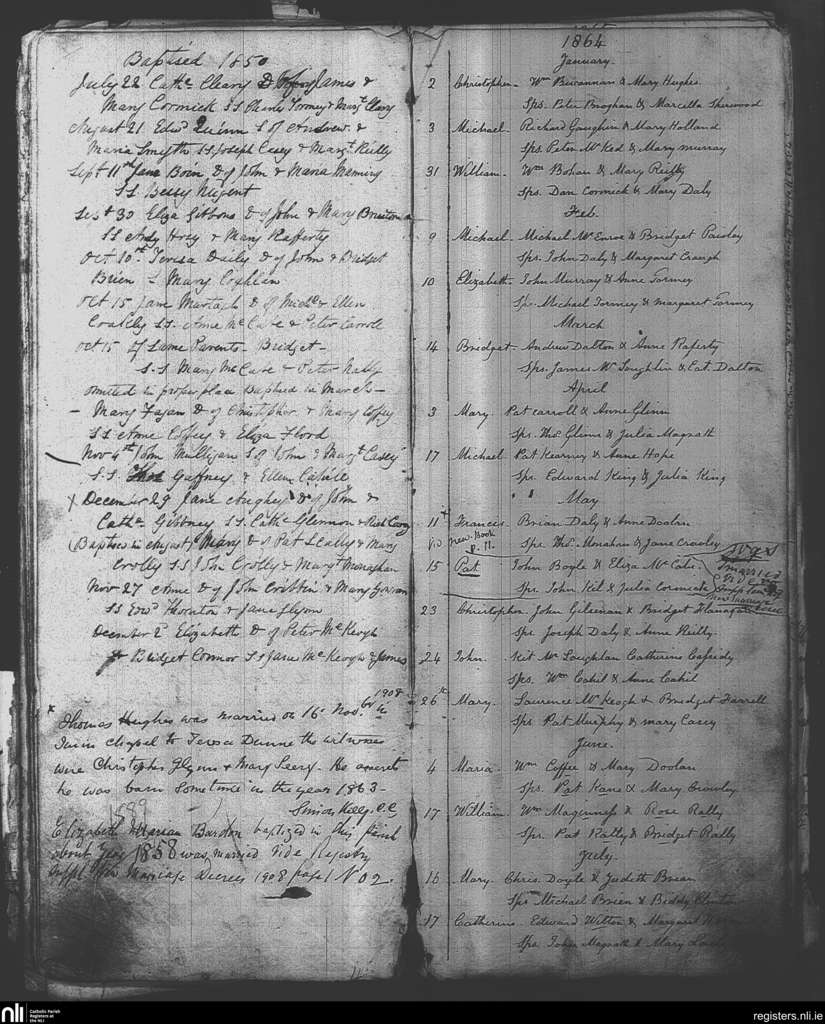 Baptised 1850
July 22 Cathe Cleary D of James &
Mary Cormick SS Charles Tormey & Margt Cleary
August 21 Edwd Quinn S of Andrew &
Maria Smyth SS Joseph Casey & Margt Reilly
Sept 11th Jane Boin D of John & Maria
SS Bessy Nugent
Sept 30 Eliza Gibbons D of John & Mary
SS Andy & Mary Rafferty
Oct 10th Teresa Daily D of John & Bridget
Brien & Mary Coghlan
Oct 15 Jane Murtagh D of Michl & Ellen
Coakley SS Anne McCabe & Peter Carroll
Oct 15 of Same Parents - Bridget -
SS Mary McCabe & Peter Nally
omitted in proper place Baptised in March -
- Mary Fagan D of Christopher & Mary Coffey
SS Anne Coffey & Eliza Flood
Nov 4th John Mulligan S of John & Margt Casey
SS Thos Gaffney & Ellen Cahill
X December 29 Jane Hughes D of John &
Cathe Gibbney SS Cathe Glennon &
(Baptised in August) Mary D of Pat Scally & Mary
Crolly SS John Crolly & Margt Monaghan
Nov 27 Anne D of John Cribbin & Mary
SS Edwd Thornton & Jane Glynn
December 2d Elizabeth D of Peter McKeogh
& Bridget Connor SS Jane McKeogh & James
x Thomas Hughes was married on 16 Novbr 1908 in
chapel to Teresa Dunne the witnesses
were Christopher Glynn & Mary Leery - He asserts
he was born sometime in the year 1863 -
Simon Kelly C.C.
1899
Elizabeth Marian Bardon baptized in this parish
about year 1858 was married Vide Registry
Suppl New Marriage Decrees 1908 page 1 No 2.
1864
January
2 Christopher - Wm Buvannan & Mary Hughes
Sps. Peter Broghan & Marcella Sherwood
3 Michael - Richard Goughran & Mary Holland
Sps. Peter McKed & Mary Murray
31 William - Wm Bohan & Mary Reilly
Sps. Dan Cormick & Mary Daly
Feb.
9 Michael - Michael McEnroe & Bridget Paisley
Sps. John Daly & Margaret Creagh
10 Elizabeth - John Murray & Anne Tormey
Sps. Michael Tormey & Margaret Tormey
March
14 Bridget - Andrew Dalton & Anne Raferty
Sps. James McLoughlin & Cat. Dalton
April
3 Mary Pat Carroll & Anne Glinn
Sps. Ths. Glinn & Julia Magrath
17 Michael Pat Kearney & Anne Hope
Spr. Edward King & Julia King
" " May
11th Francis Brian Daly & Anne Doolin
Vid New Book P. 11. Sps. Ths. Monahan & Jane Crawley
15 Pat John Boyle & Eliza McCabe
Spr. John Kil & Julia Cormick
married
Vide
Suppl
New Marriage
23 Christopher John Gilsenan & Bridget Flanagan
Spr. Joseph Daly & Anne Reilly
24 John Kit McLoughlan Catherine Cassidy
Sps. Wm Cahil & Anne Cahil
26th Mary. Laurence McKeogh & Bridget Farrell
Sps Pat Murphy & Mary Casey
June.
4 Maria Wm Coffee & Mary Doolan
Sps. Pat Kane & Mary Crowley
17 William. Wm Maginness & Rose Rally
Spr. Pat Rally & Bridget Rally
July.
16 Mary. Chris. Doyle & Judith Brian
Sps Michael Brien & Biddy Clinton
17 Catherine. Edward Wilton & Margaret
Sps. John Magrath & Mary
nli
Catholic Parish
Registers at
the NLI
registers.nli.ie